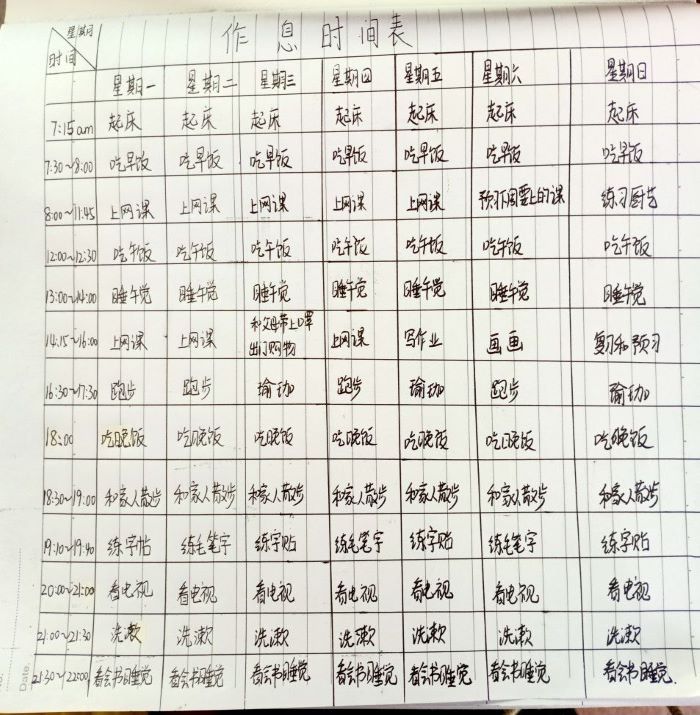 作息时间表
星期
时间
星期一 星期二 星期三 星期四 星期五 星期六 星期日
7:15am 起床 起床 起床 起床 起床 起床 起床
7:30~8:00 吃早饭 吃早饭 吃早饭 吃早饭 吃早饭 吃早饭 吃早饭
8:00~11:45 上网课 上网课 上网课 上网课 上网课 预习下周要上的课 练习厨艺
12:00~12:30 吃午饭 吃午饭 吃午饭 吃午饭 吃午饭 吃午饭 吃午饭
13:00~14:00 睡午觉 睡午觉 睡午觉 睡午觉 睡午觉 睡午觉 睡午觉
14:15~16:00 上网课 上网课 和父母带上口罩出门购物 上网课 写作业 画画 复习和预习
16:30~17:30 跑步 跑步 瑜珈 跑步 瑜珈 跑步 瑜珈
18:00 吃晚饭 吃晚饭 吃晚饭 吃晚饭 吃晚饭 吃晚饭 吃晚饭
18:30~19:00 和家人散步 和家人散步 和家人散步 和家人散步 和家人散步 和家人散步 和家人散步
19:10~19:40 练字帖 练毛笔字 练字贴 练毛笔字 练字贴 练毛笔字 练字贴
20:00~21:00 看电视 看电视 看电视 看电视 看电视 看电视 看电视
21:00~21:30 洗漱 洗漱 洗漱 洗漱 洗漱 洗漱 洗漱
21:30~22:00 看会书睡觉 看会书睡觉 看会书睡觉 看会书睡觉 看会书睡觉 看会书睡觉 看会书睡觉.
Date.